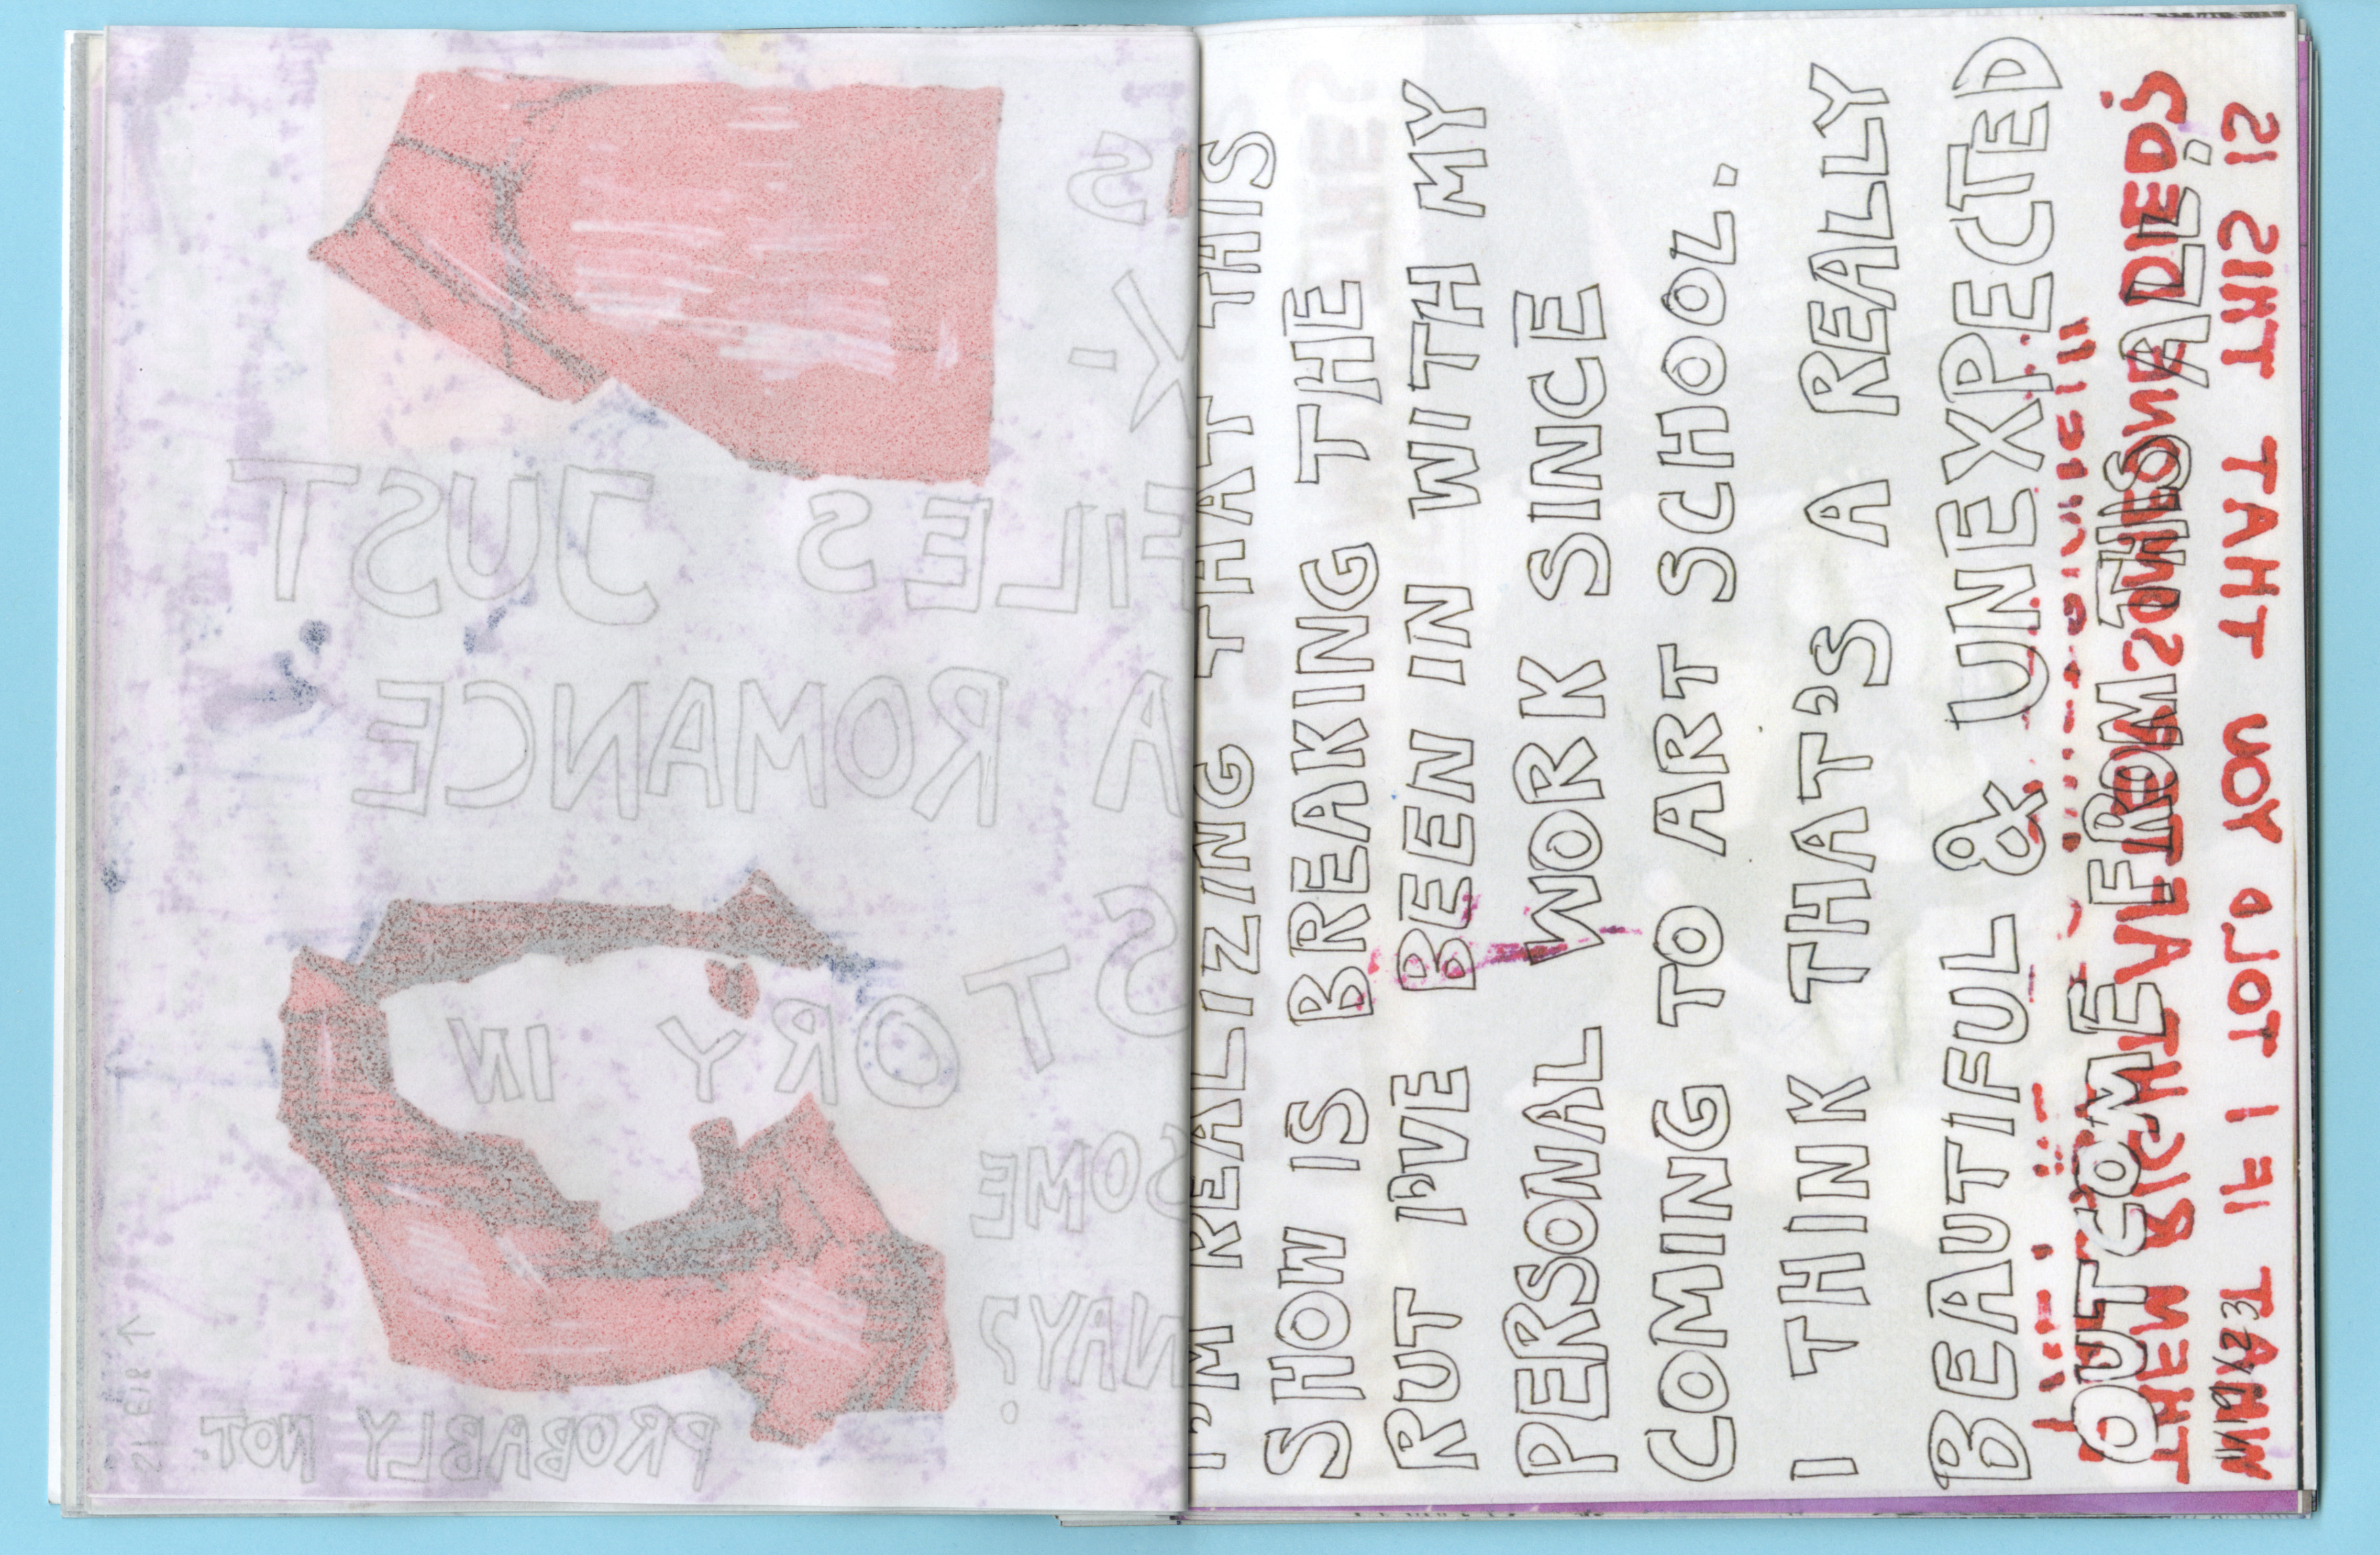 IS
X-
FILES JUST
A ROMANCE
STORY IN
SOME
WAY?
PROBABLY NOT.
I'M REALIZING THAT THIS
SHOW IS BREAKING THE
RUT I'VE BEEN IN WITH MY
PERSONAL WORK SINCE
COMING TO ART SCHOOL.
I THINK THAT'S A REALLY
BEAUTIFUL & UNEXPECTED
OUTCOME FROM THIS ALL.
11/19/23
WHAT IF I TOLD YOU THAT THIS IS
THEM RIGHT AFTER SOMEONE DIED?